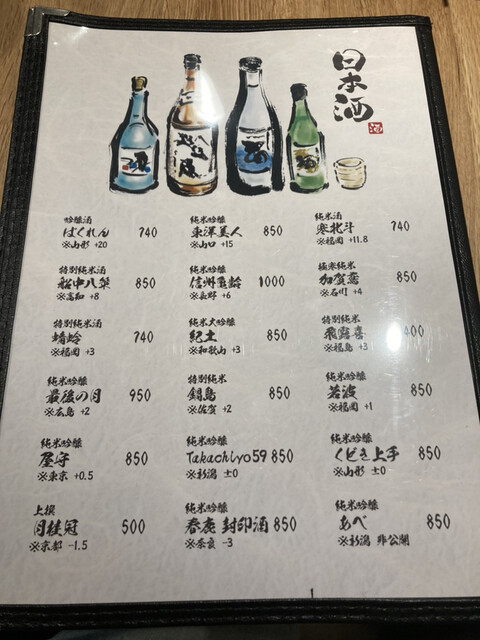 日本酒
吟醸酒
ばくれん 740
※山形 +20
純米吟醸
東洋美人 850
※山口 +15
純米酒
寒北斗 740
※福岡 +11.8
特別純米酒
船中八策 850
※高知 +8
純米吟醸
信州亀齢 1000
※長野 +6
極寒純米
加賀鳶 850
※石川 +4
特別純米酒
蜻蛉 740
※福岡 +3
純米大吟醸
紀土 850
※和歌山 +3
特別純米
飛露喜
※福島 +3
純米吟醸
最後の月 950
※広島 +2
特別純米
鍋島 850
※佐賀 +2
純米吟醸
若波 850
※福岡 +1
純米吟醸
屋守 850
※東京 +0.5
純米吟醸
Takachiyo59 850
※新潟 ±0
純米吟醸
くどき上手 850
※山形 ±0
上撰
月桂冠 500
※京都 -1.5
純米吟醸
春鹿 封印酒 850
※奈良 -3
純米吟醸
あべ 850
※新潟 非公開